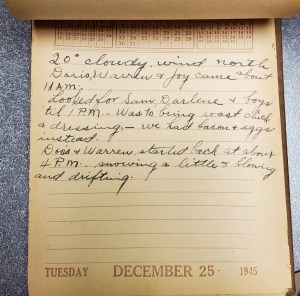 20° cloudy, wind north
Doris, Warren & Joy came about
11 A.M.
Looked for Sam, Darlene & boys
til 1 P.M. - Was to bring roast chick
& dressing, - we had bacon & eggs
instead.
Doris & Warren started back at about
4 P.M. snowing a little & blowing
and drifting.
TUESDAY DECEMBER 25 1945